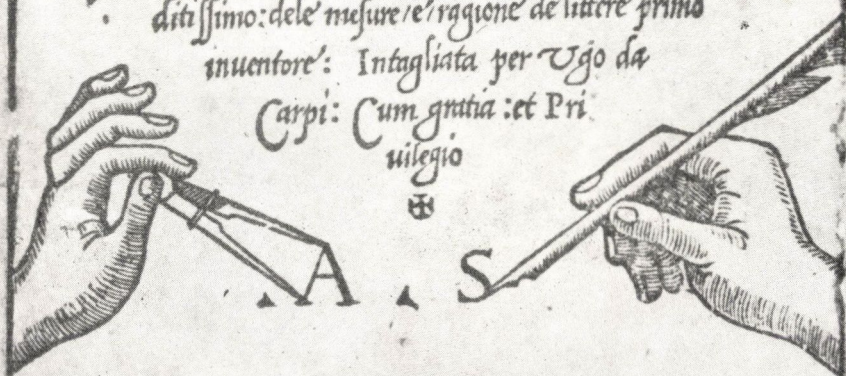 ditissimo: dele mesure /e/ ragione de littere primo
inventore: Intagliata per Vgo da
Carpi: Cum gratia :et Pri
uilegio
A . S